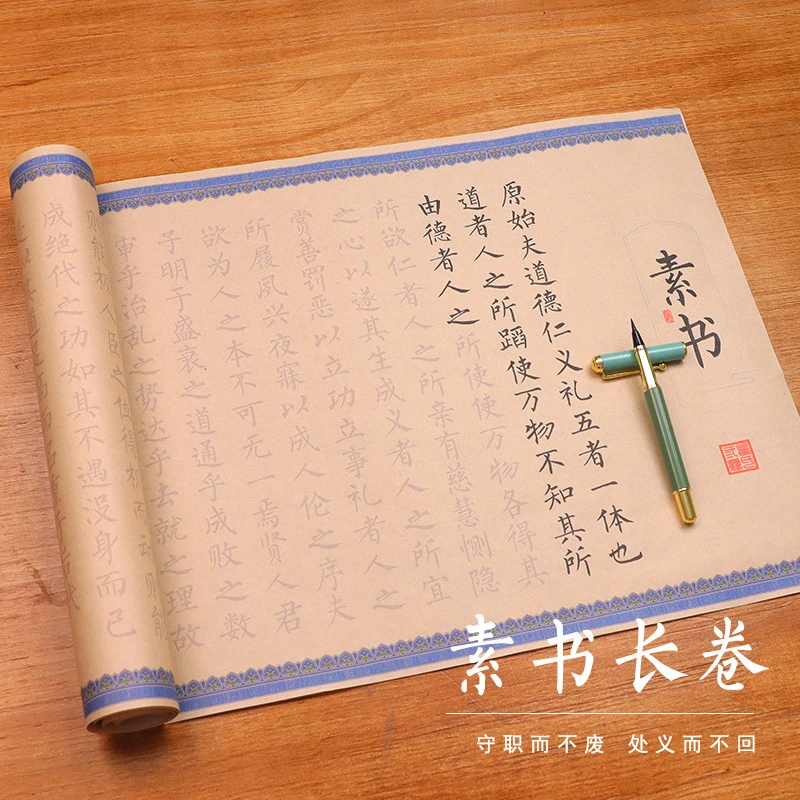 素书
原始夫道德仁义礼五者一体也
道者人之所蹈使万物不知其所
由德者人之所使使万物各得其
所欲仁者人之所亲有慈慧恻隐
之心以遂其生成义者人之所宜
赏善罚恶以立功立事礼者人之
所履夙兴夜寐以成人伦之序夫
欲为人之本不可无一焉贤人君
子明于盛衰之道通乎成败之数
审乎治乱之势达乎去就之理故
则能极人臣之位得机而动则能
成绝代之功如其不遇没身而已
素书长卷
守职而不废 处义而不回